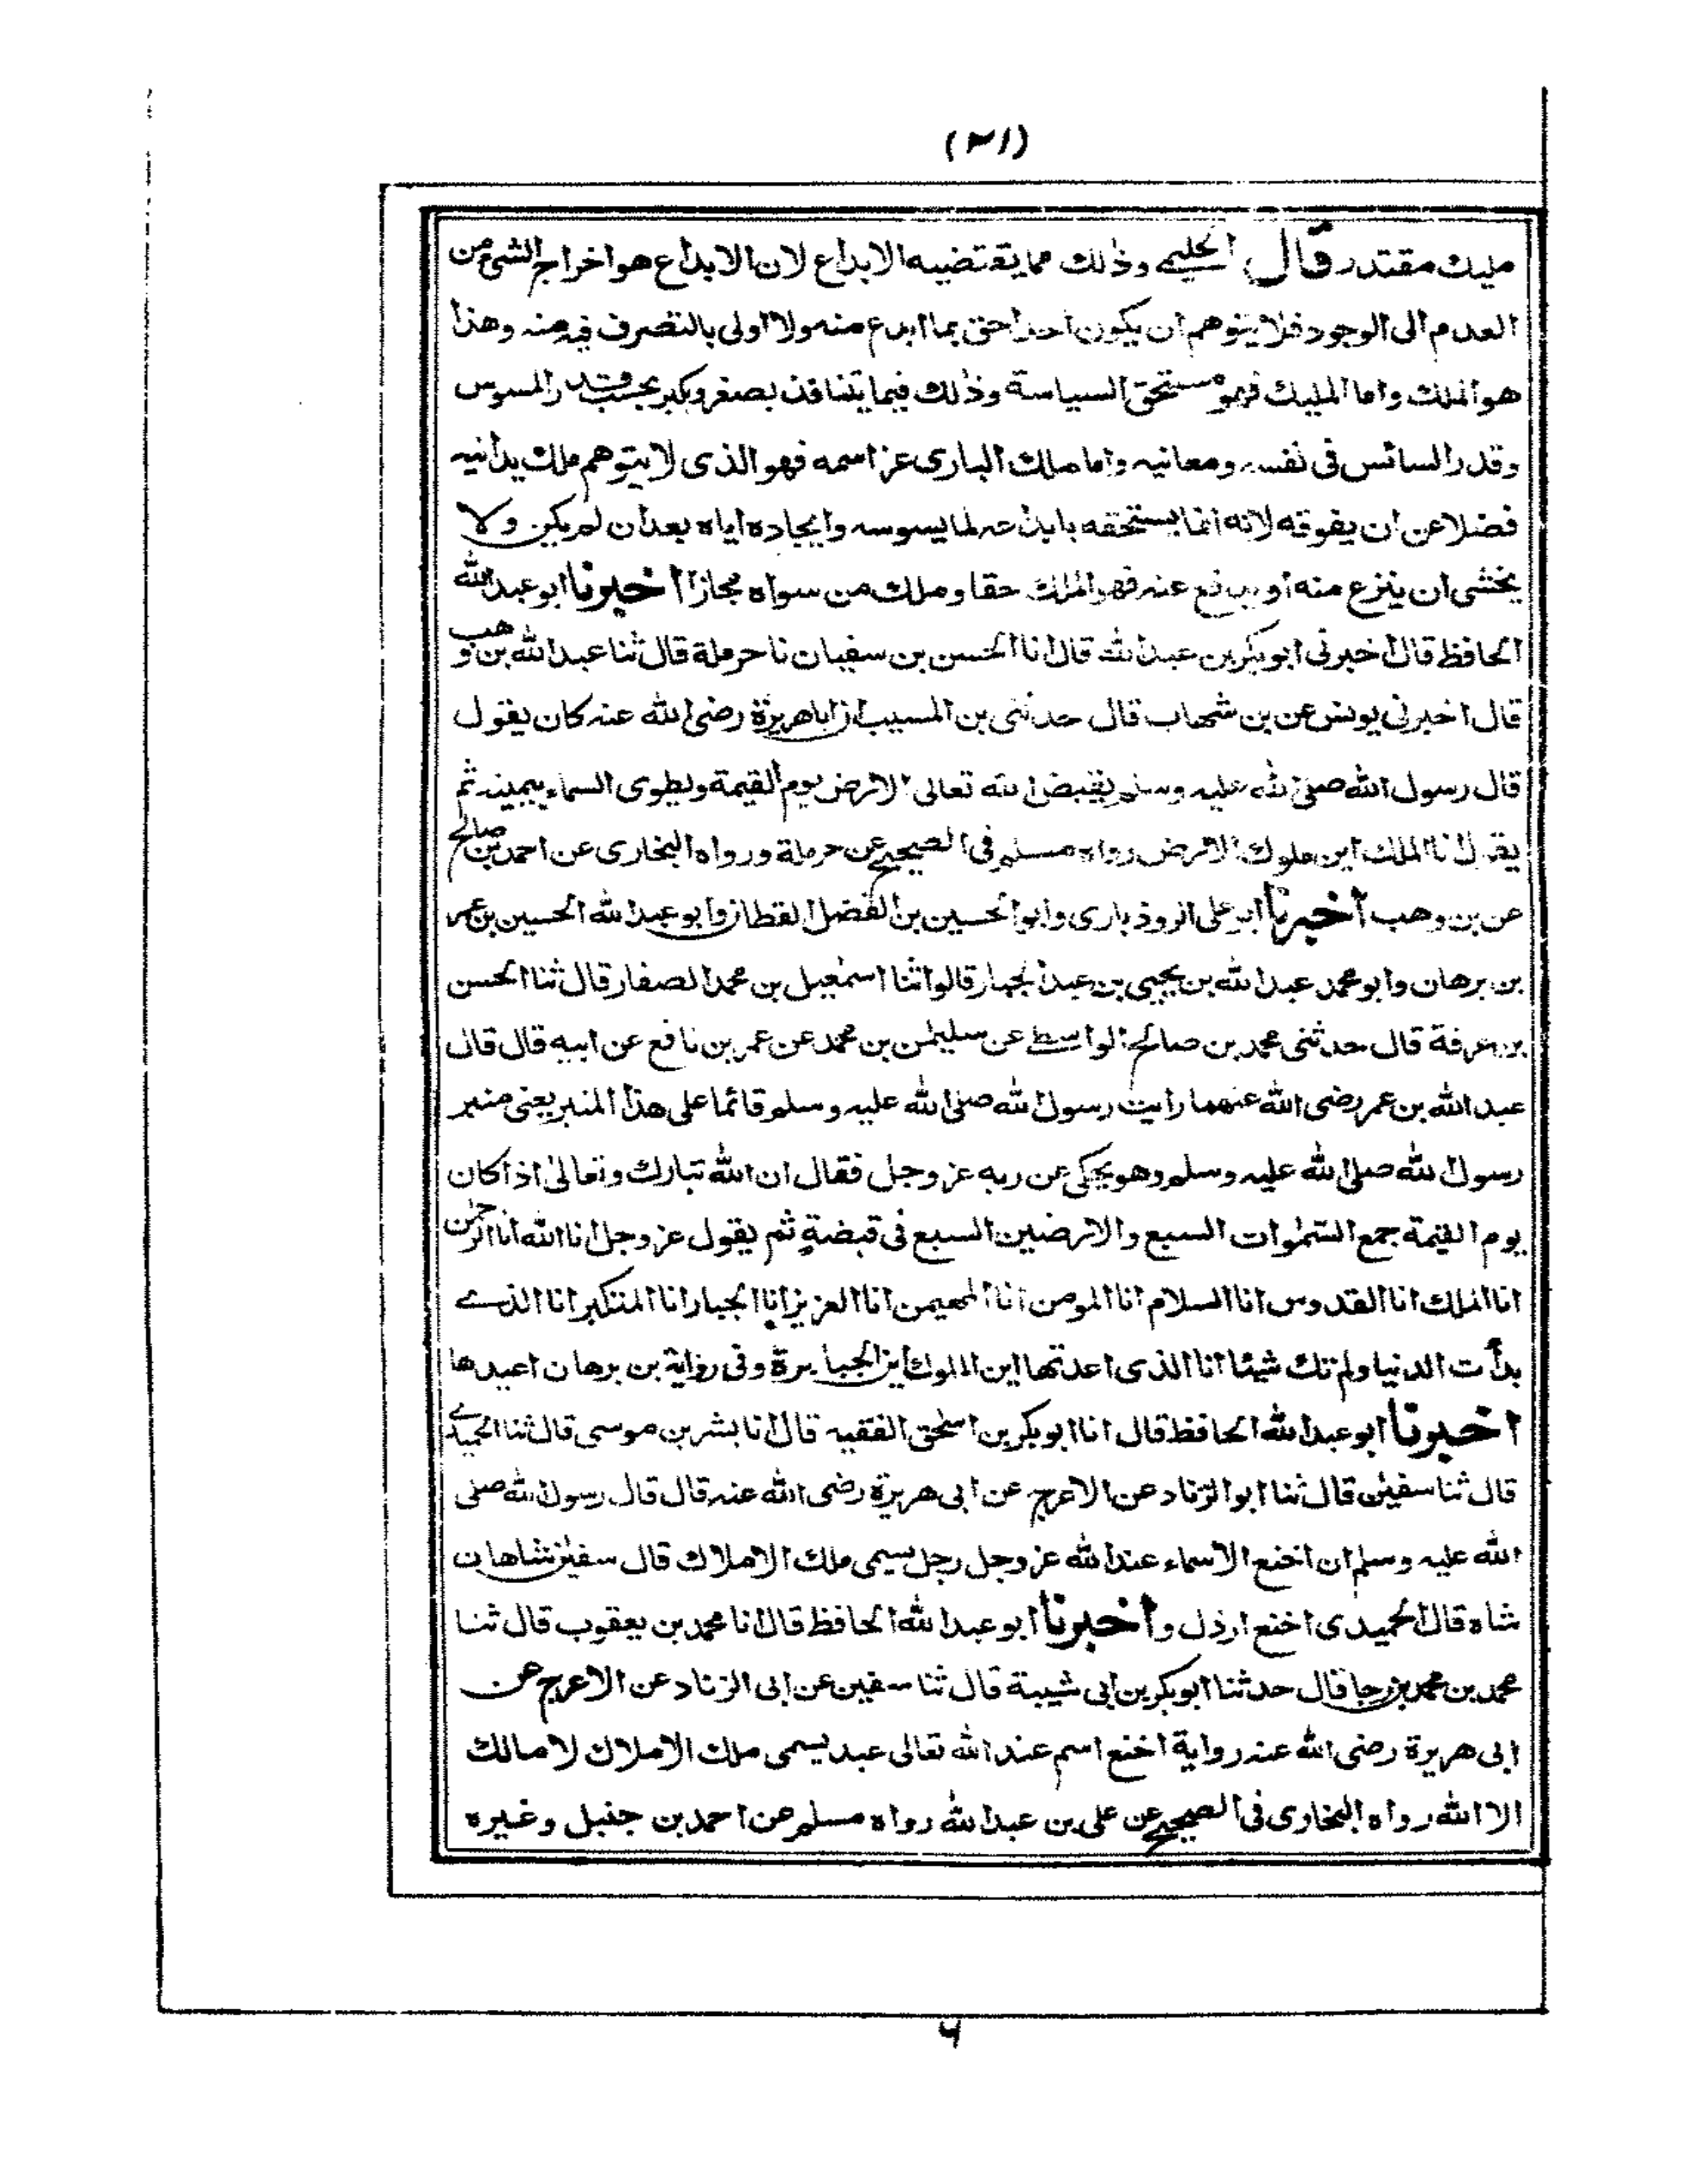 (٢١)
مليك مقتدر قال الحليمي وذلك مما يقتضيه الابداع لان الابداع هو اخراج الشئ من
العدم الى الوجود فلا يتوهم ان يكون احد احق بما ابدع منه ولا اولى بالتصرف فيه منه وهذا
هو الملك واما المليك فهو مستحق السياسة وذلك فيما بيننا قد يصغر ويكبر بحسب قدر المسوس
وقدر السائس فى نفسه ومعانيه واما ملك البارى عز اسمه فهو الذى لا يتوهم ملك يدانيه
فضلا عن ان يفوقه لانه انما يستحقه بابداعه لما يسوسه وايجاده اياه بعد ان لم يكن ولا
يخشى ان ينزع منه او يدفع عنه فهو الملك حقا وملك من سواه مجازا اخبرنا ابو عبد الله
الحافظ قال اخبرنى ابو بكر بن عبد الله قال انا الحسن بن سفيان نا حرملة قال ثنا عبد الله بن وهب
قال اخبرنى يونس عن بن شهاب قال حدثنى بن المسيب ان اباهريرة رضى الله عنه كان يقول
قال رسول الله صلى الله عليه وسلم يقبض الله تعالى الارض يوم القيمة ويطوى السماء بيمينه ثم
يقول انا الملك اين ملوك الارض رواه مسلم فى الصحيح عن حرملة ورواه البخارى عن احمد بن صالح
عن بن وهب اخبرنا ابو على الروذبارى وابو الحسين بن الفضل القطان وابو عبد الله الحسين بن عمر
بن برهان وابو محمد عبد الله بن يحيى بن عبد الجبار قالوا ثنا اسمعيل بن محمد الصفار قال ثنا الحسن
بن عرفة قال حدثنى محمد بن صالح الواسطى عن سليمن بن محمد عن عمر بن نافع عن ابيه قال قال
عبد الله بن عمر رضى الله عنهما رايت رسول الله صلى الله عليه وسلم قائما على هذا المنبر يعنى منبر
رسول الله صلى الله عليه وسلم وهو يحكى عن ربه عز وجل فقال ان الله تبارك وتعالى اذا كان
يوم القيمة جمع السموات السبع والارضين السبع فى قبضةٍ ثم يقول عز وجل انا الله انا الرحمن
انا الملك انا القدوس انا السلام انا المومن انا المهيمن انا العزيز انا الجبار انا المتكبر انا الذے
بدأت الدنيا ولم تك شيئا انا الذى اعدتها اين الملوك اين الجبابرة وفى رواية بن برهان اعيدها
اخبرنا ابو عبد الله الحافظ قال انا ابو بكر بن اسحق الفقيه قال انا بشر بن موسى قال ثنا الحميدے
قال ثنا سفين قال ثنا ابو الزناد عن الاعرج عن ابى هريرة رضى الله عنه قال قال رسول الله صلى
الله عليه وسلم ان اخنع الاسماء عند الله عز وجل رجل يسمى ملك الاملاك قال سفين شاهان
شاه قال الحميدى اخنع ارذل واخبرنا ابو عبد الله الحافظ قال انا محمد بن يعقوب قال ثنا
محمد بن محمد بن رجا قال حدثنا ابو بكر بن ابى شيبة قال ثنا سفين عن ابى الزناد عن الاعرج عن
ابى هريرة رضى الله عنه رواية اخنع اسم عند الله تعالى عبد يسمى ملك الاملاك لا مالك
الا الله رواه البخارى فى الصحيح عن على بن عبد الله رواه مسلم عن احمد بن حنبل وغيره
۶